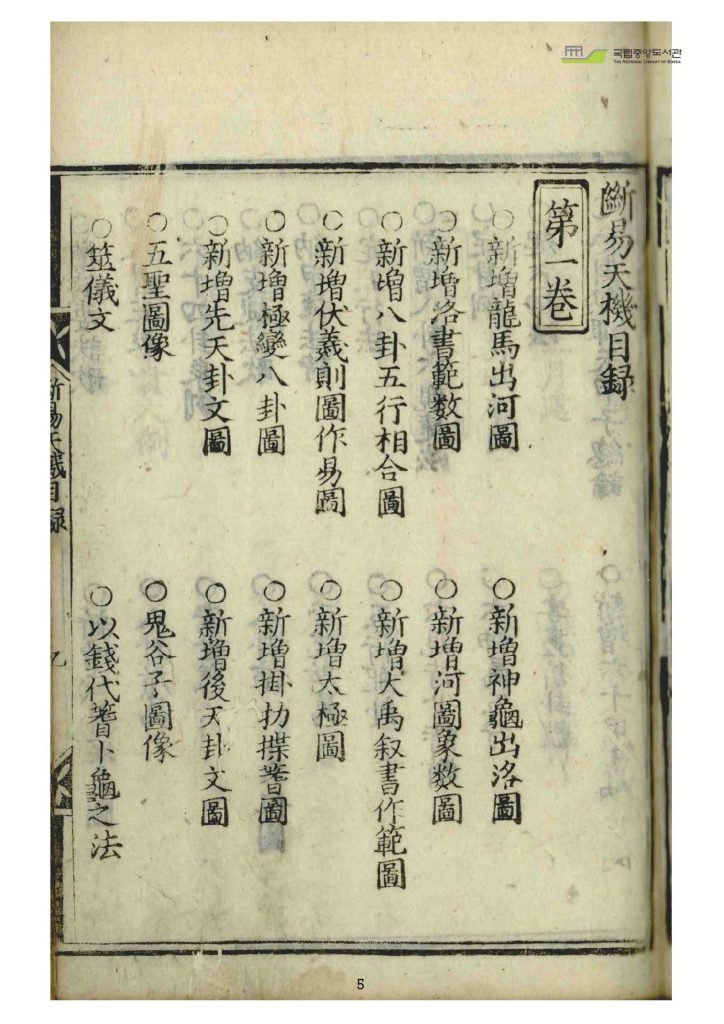 국립중앙도서관
THE NATIONAL LIBRARY OF KOREA
斷易天機目録
第一卷
○新增龍馬出河圖
○新增神龜出洛圖
○新增洛書範数圖
○新增河圖象数圖
○新增八卦五行相合圖
○新增大禹叙書作範圖
○新增伏羲則圖作易圖
○新增太極圖
○新增極變八卦圖
○新增掛扐揲蓍圖
○新增先天卦文圖
○新增後天卦文圖
○五聖圖像
○鬼谷子圖像
○筮儀文
○以錢代蓍卜龜之法
斷易天機目録
5